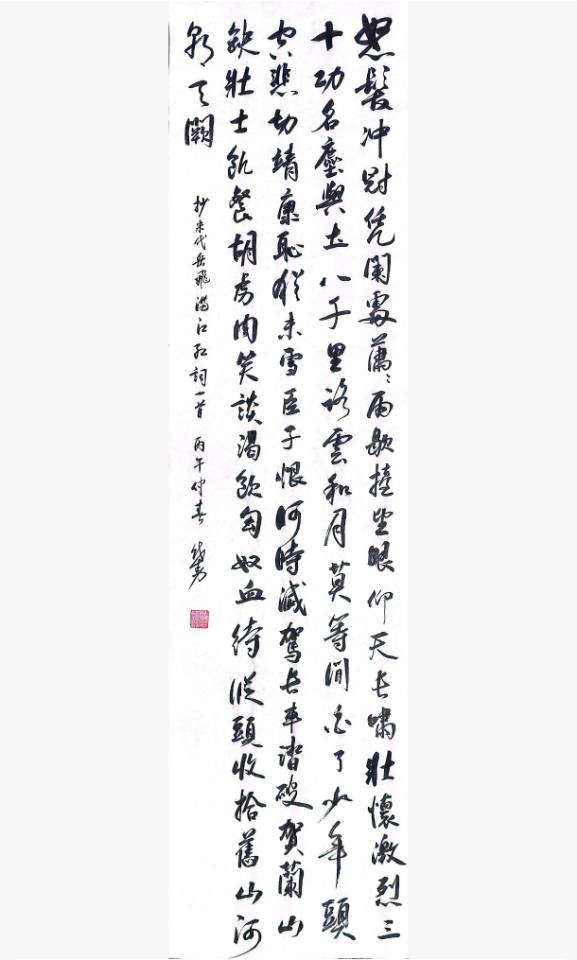 怒髮冲冠凭闌處蕭〻雨歇擡望眼仰天長嘯壯懷激烈三
十功名塵與土八千里路雲和月莫等閒白了少年頭
空悲切靖康恥猶未雪臣子恨何時滅駕長車踏破賀蘭山
缺壯士飢餐胡虜肉笑談渴飲匈奴血待從頭收拾舊山河
朝天闕
抄宋代岳飛滿江紅詞一首 丙午仲春